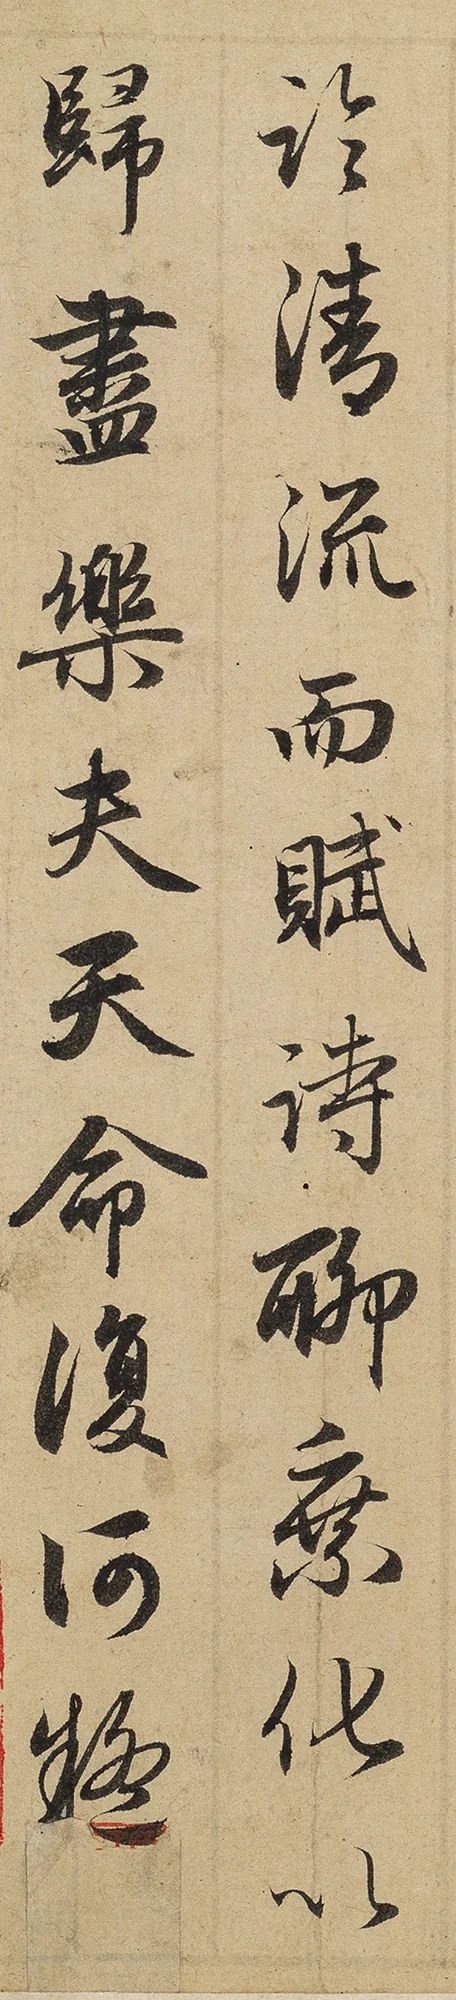 臨清流而賦詩聊乘化以
歸盡樂夫天命復何疑